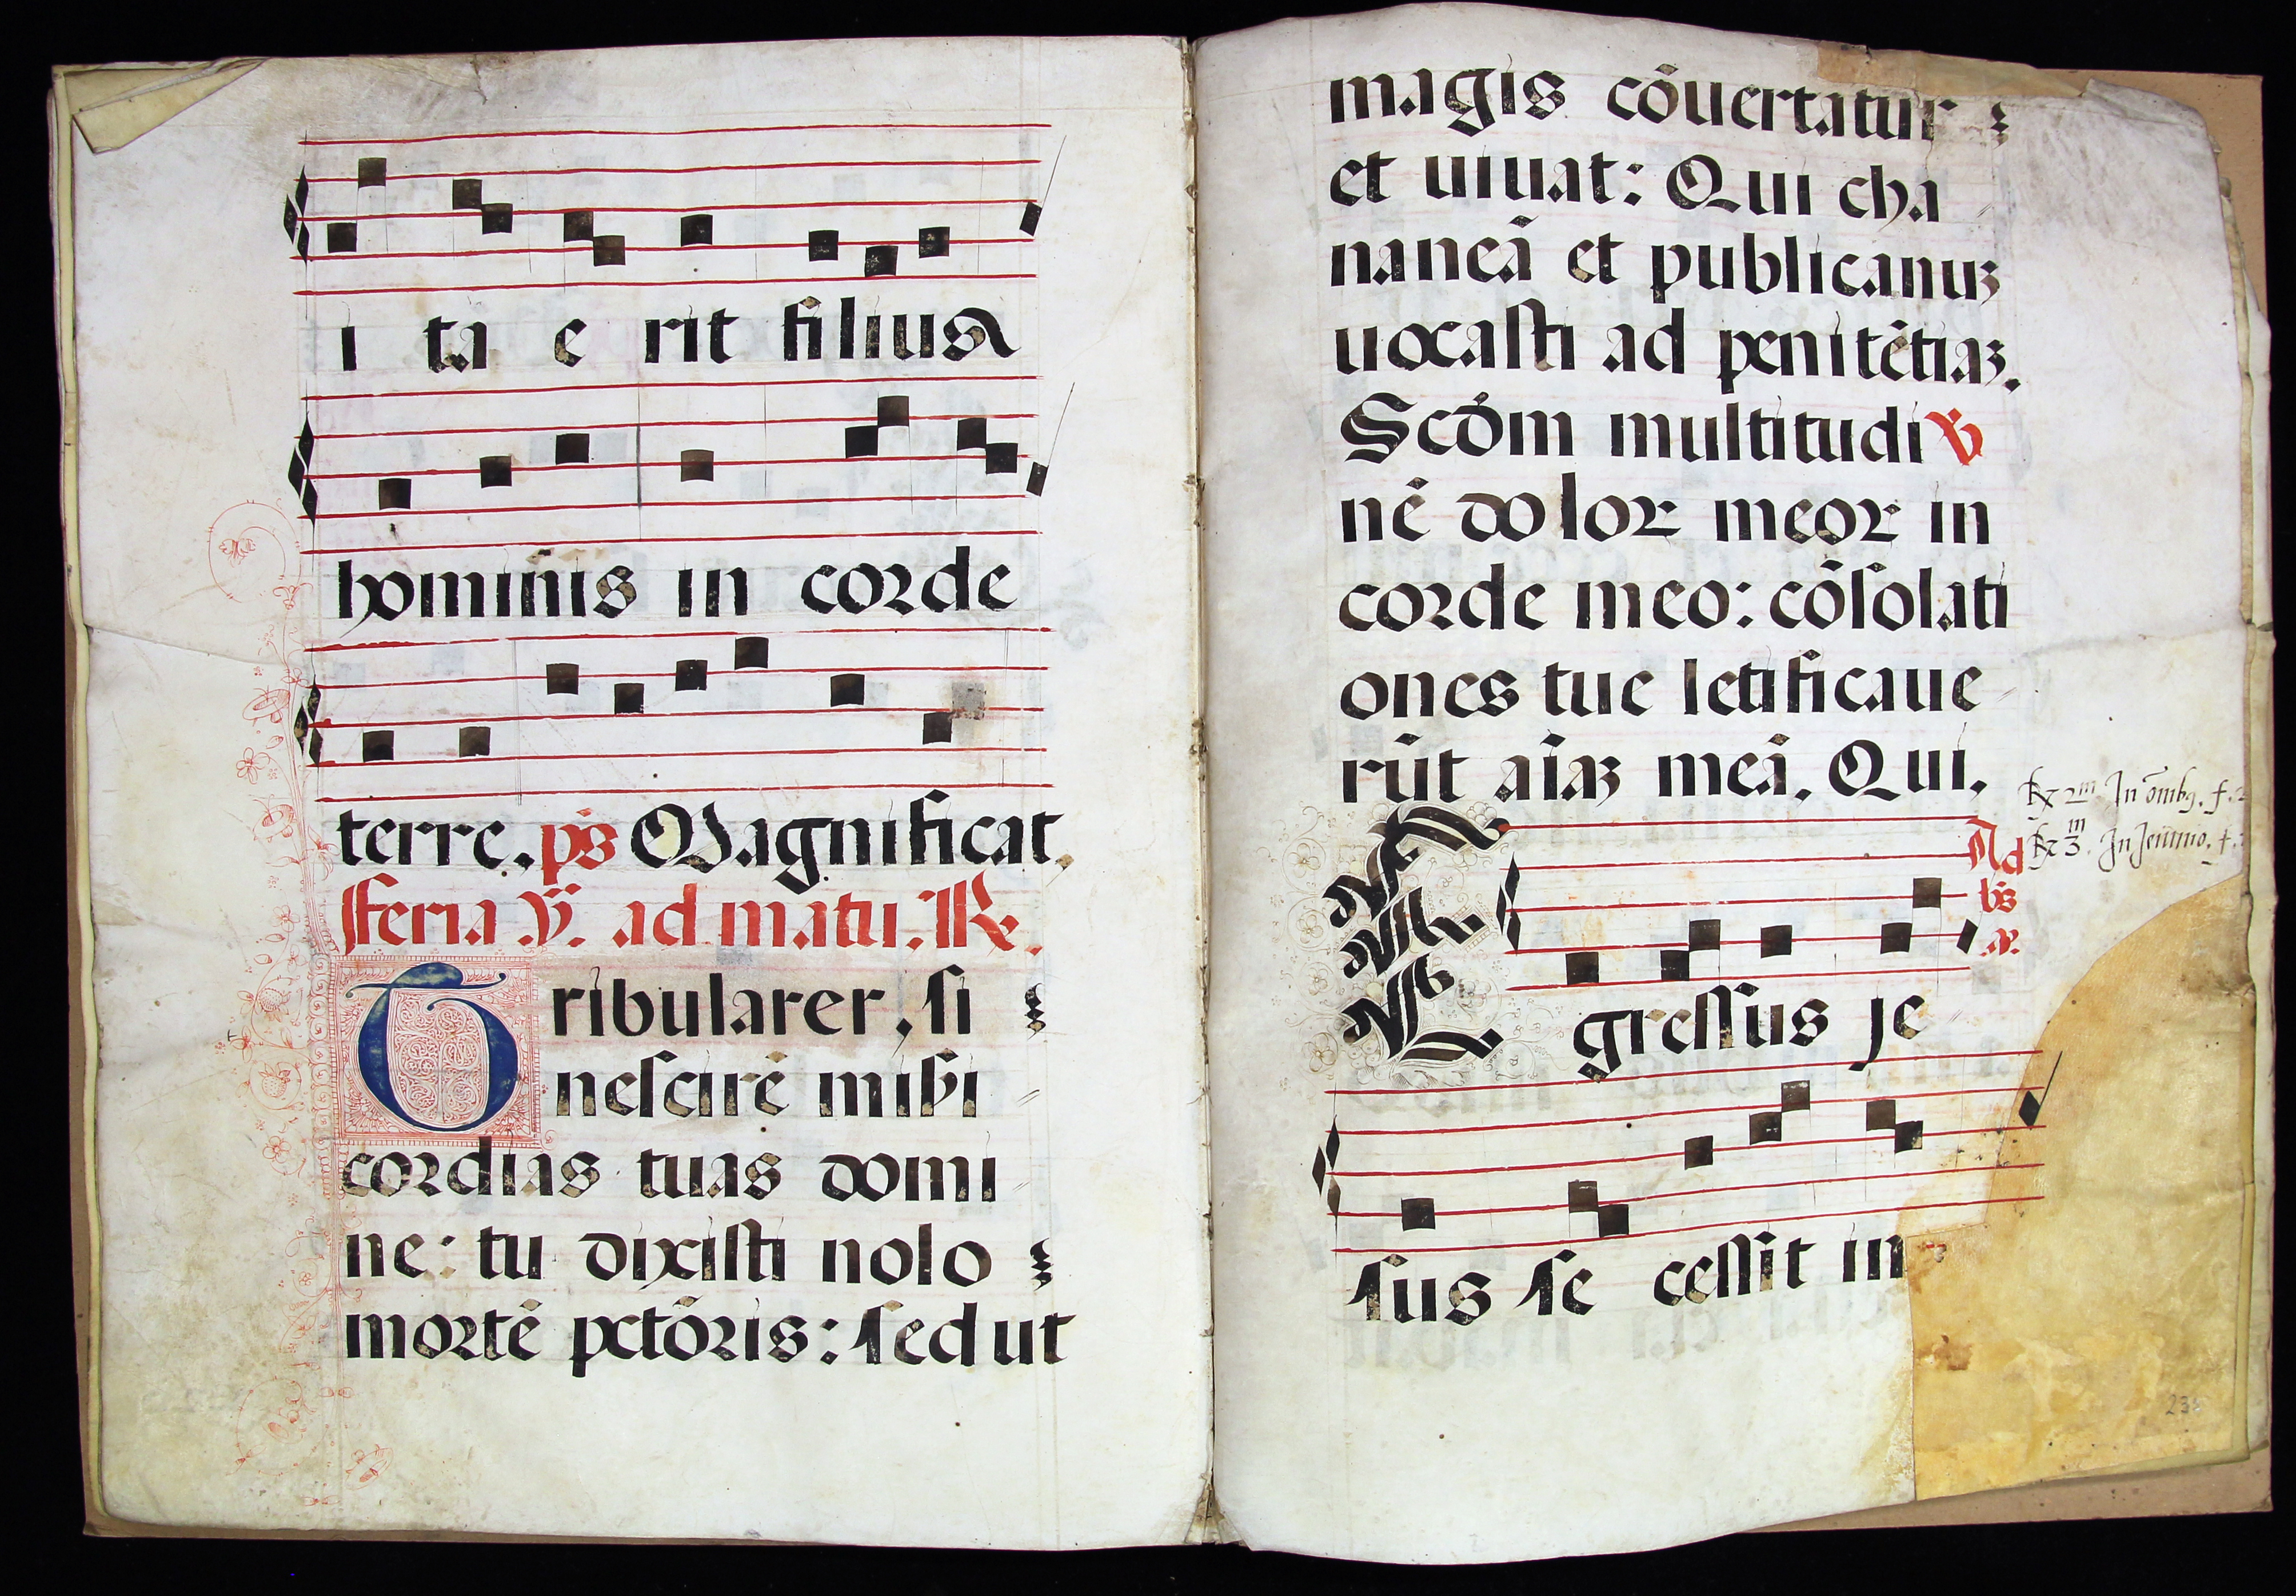 i ta e rit filius
hominis in corde
terre. ps Magnificat.
Feria v. ad matu. R.
Tribularer, si
nescirē misi
cordias tuas domi
ne: tu dixisti nolo
mortē pctōris: sed ut
magis cōuertatur
et uiuat: Qui cha
naneā et publicanuꝫ
uocasti ad penitētiaꝫ.
Scdm̄ multitudi ℣
nē doloꝝ meoꝝ in
corde meo: cōsolati
ones tue letificaue
rūt aīaꝫ meā. Qui.
℞ 2m In ōmbꝰ. f.
℞ 3m. In Jeiunio. f.
Ad
bs
Egressus je
sus se cessit in
238